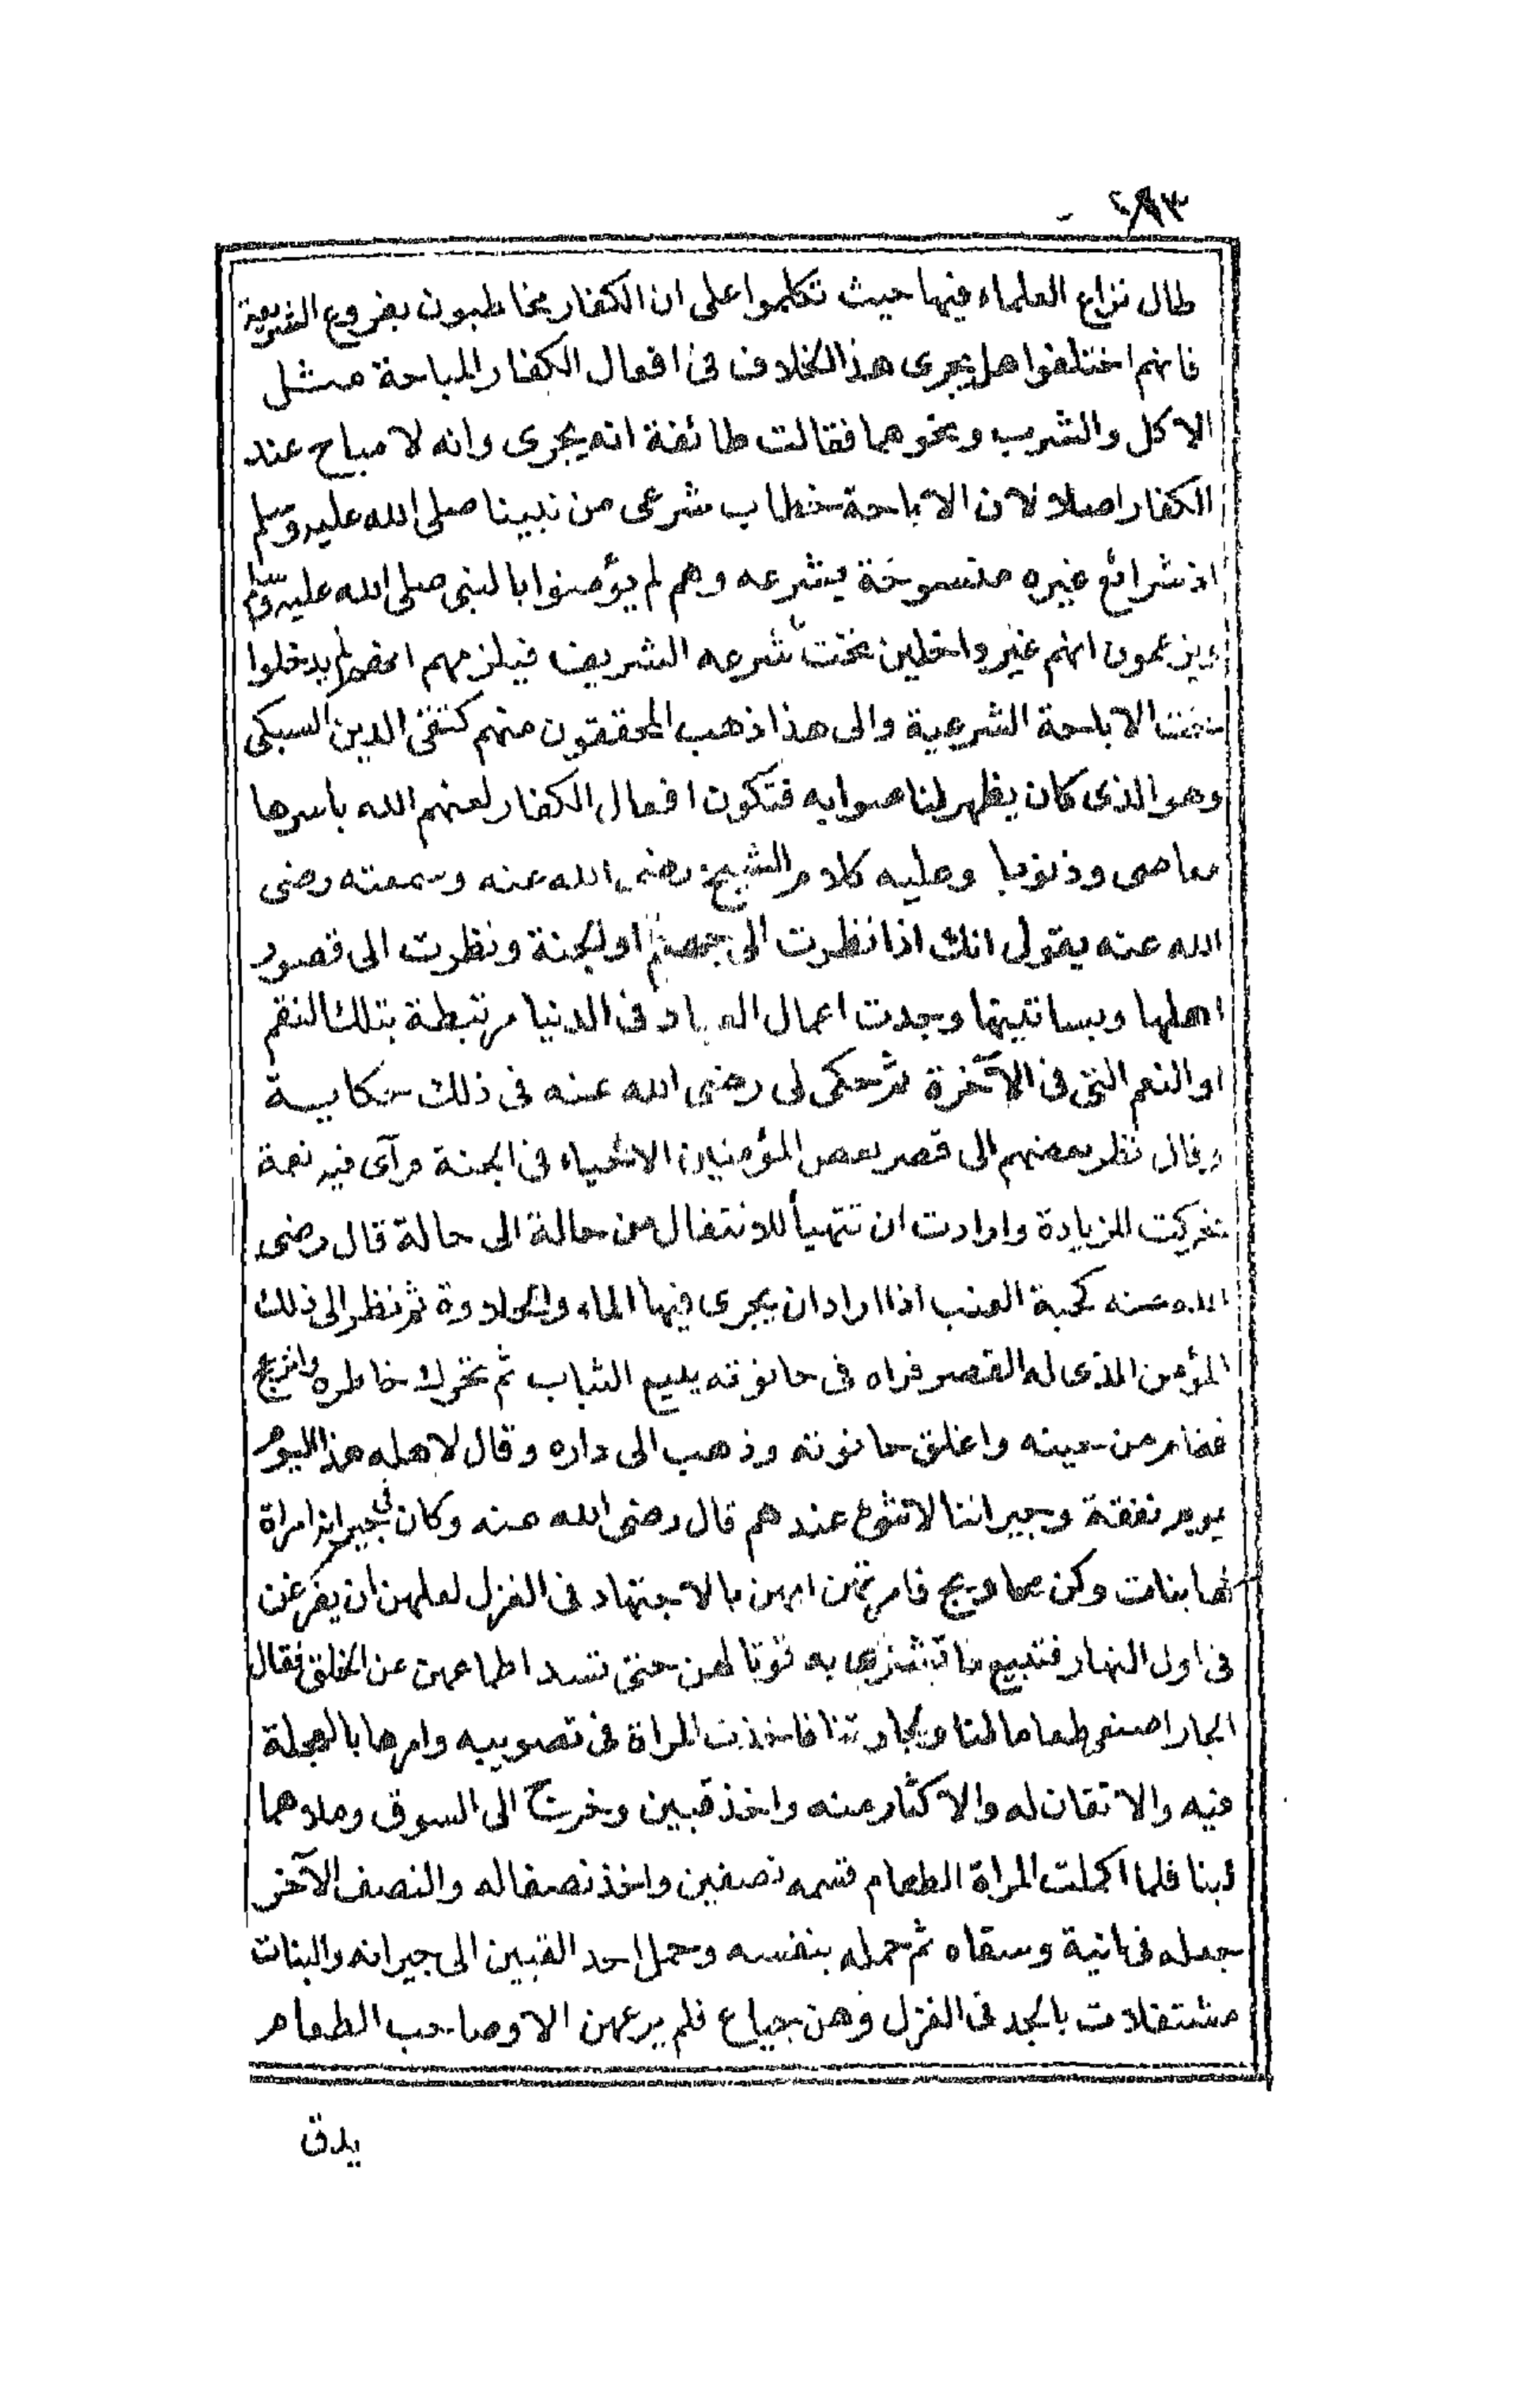 ٤٩٣
طال نزاع العلماء فيها حيث تكلموا على ان الكفار مخاطبون بفروع الشريعة
فانهم اختلفوا هل يجرى هذا الخلاف فى افعال الكفار المباحة مثل
الاكل والشرب ونحوهما فقالت طائفة انه يجرى وانه لا مباح عند
الكفار اصلا لان الاباحة خطاب شرعى من نبينا صلى الله عليه وسلم
اذ شرائع غيره منسوخة بشرعه وهم لم يؤمنوا بالنبى صلى الله عليه وسلم
ويزعمون انهم غير داخلين تحت شرعه الشريف فيلزمهم انهم لم يدخلوا
تحت الاباحة الشرعية والى هذا ذهب المحققون منهم كتقى الدين السبكى
وهو الذى كان يظهر لنا صوابه فتكون افعال الكفار لعنهم الله باسرها
معاصى وذنوبا وعليه كلام الشيخ رضى الله عنه وسمعته رضى
الله عنه يقول انك اذا نظرت الى جهنم او الجنة ونظرت الى قصور
اهلها وبساتينها وجدت اعمال العباد فى الدنيا مرتبطة بتلك النقم
او النعم التى فى الآخرة ثم حكى لى رضى الله عنه فى ذلك حكاية
وقال نظر بعضهم الى قصر بعض المؤمنين الاحياء فى الجنة فرآى فيه نعمة
تحركت للزيادة وارادت ان تتهيأ للانتقال من حالة الى حالة قال رضى
الله عنه كحبة العنب اذا اراد ان يجرى فيها الماء والحلاوة ثم نظر الى ذلك
المؤمن الذى له القصر فراه فى حانوته يبيع الثياب ثم تحرك خاطره وانزعج
فقام من حينه واغلق حانوته وذهب الى داره وقال لاهله هذا اليوم
يوم نفقة وجيراننا لا شىء عندهم قال رضى الله عنه وكان فى جيرانه امراة
لها بنات وكن محاويج فامرتهن امهن بالاجتهاد فى الغزل لعلهن ان يفرغن
فى اول النهار فتبيع ما تشترى به قوتا لهن حتى تسد اطماعهن عن الخلق فقال
الجار اصنعى طعاما لنا ولجارتنا فاخذت المراة فى تصويبه وامرها بالعجلة
فيه والاتقان له والاكثار منه واخذ قبين وخرج الى السوق وملاهما
لبنا فلما اكملت المراة الطعام قسمه نصفين واخذ نصفا له والنصف الآخر
جعله فى انية وسقاه ثم حمله بنفسه وحمل احد القبين الى جيرانه والبنات
مشتغلات بالجد فى الغزل وهن جياع فلم يرعهن الا وصاحب الطعام
يدق